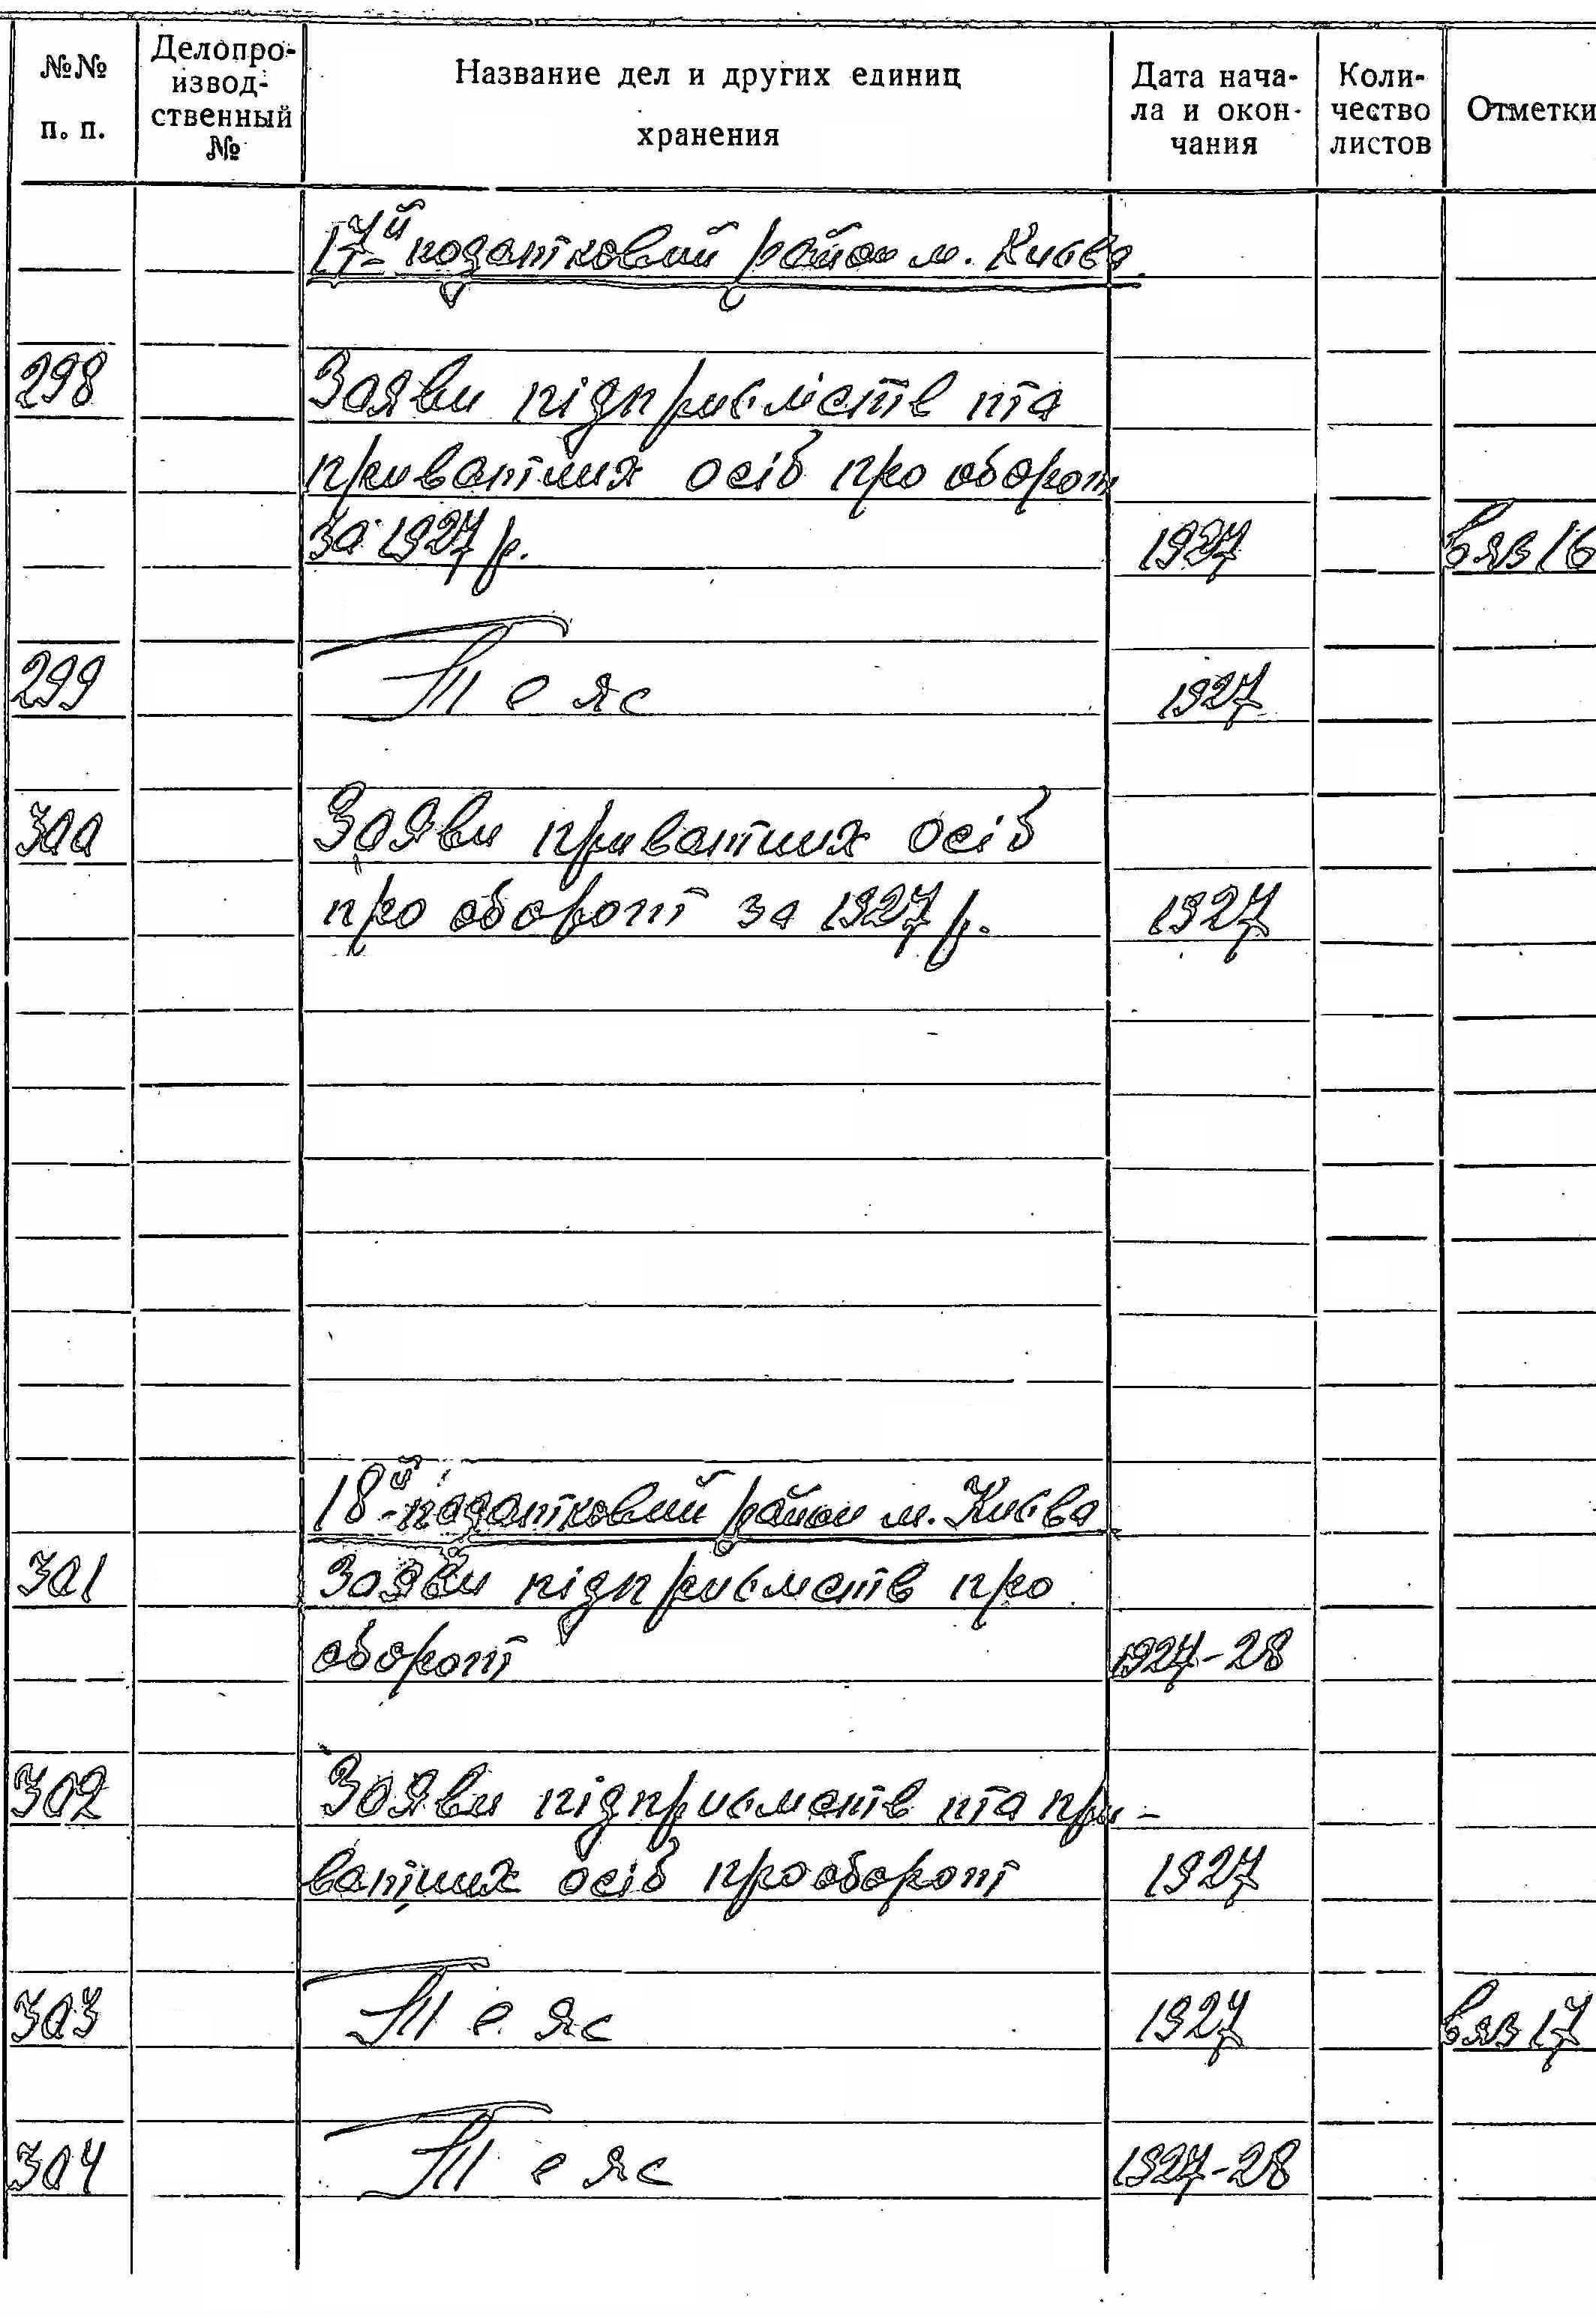 №№ п. п.
Делопро-
извод-
ственный
№
Название дел и других единиц
хранения
Дата нача-
ла и окон-
чания
Коли-
чество
листов
Отметки
17-й податковий район м. Києва
298 Заяви підприємств та
приватних осіб про оборот
за 1927 р. 1927 вяз 16
299 Те яс 1927
300 Заяви приватних осіб
про оборот за 1927 р. 1927
18-й податковий район м. Києва
301 Заяви підприємств про
оборот 1927-28
302 Заяви підприємств та при-
ватних осіб про оборот 1927
303 Те яс 1927 вяз 17
304 Те яс 1927-28